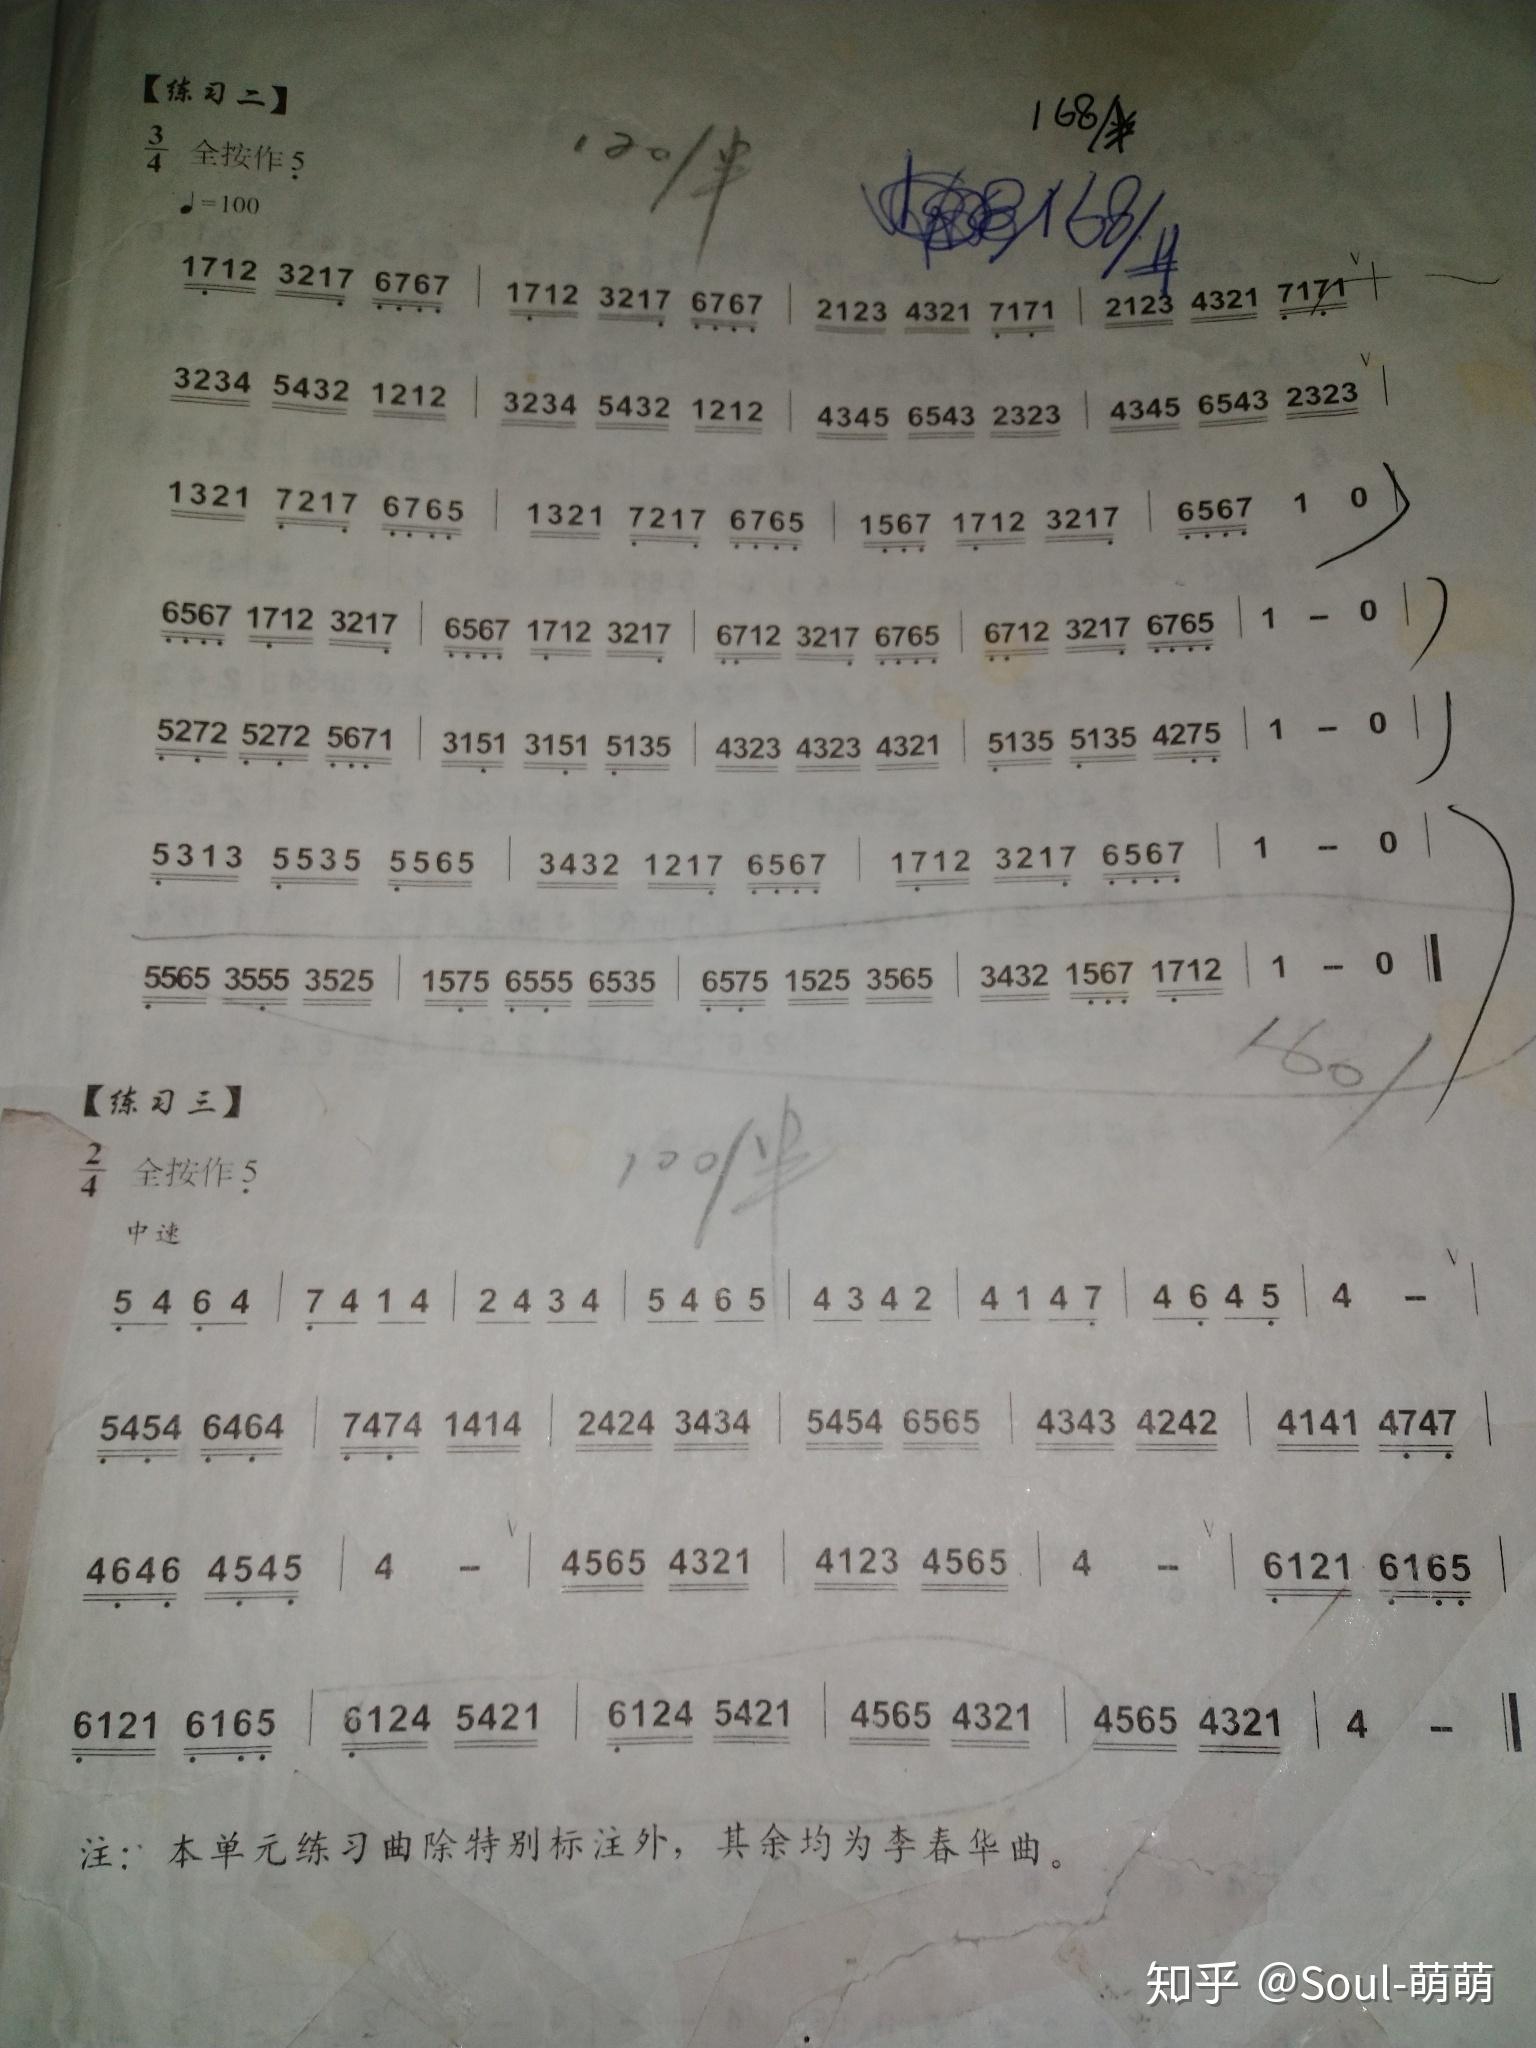 【练习二】
3/4 全按作5̣
120/半
168/半
168/
♩=100
17̣12 3217̣ 6̣7̣6̣7̣ | 17̣12 3217̣ 6̣7̣6̣7̣ | 2123 4321 7̣17̣1 | 2123 4321 7̣17̣1 V |
3234 5432 1212 | 3234 5432 1212 | 4345 6543 2323 | 4345 6543 2323 V |
1321 7̣217̣ 6̣7̣6̣5̣ | 1321 7̣217̣ 6̣7̣6̣5̣ | 15̣6̣7̣ 17̣12 3217̣ | 6̣5̣6̣7̣ 1 0 |
6̣5̣6̣7̣ 17̣12 3217̣ | 6̣5̣6̣7̣ 17̣12 3217̣ | 6̣7̣12 3217̣ 6̣7̣6̣5̣ | 6̣7̣12 3217̣ 6̣7̣6̣5̣ | 1 – 0 |
5̣27̣2 5̣27̣2 5̣6̣7̣1 | 315̣1 315̣1 5̣135 | 4323 4323 4321 | 5̣135 5̣135 427̣5̣ | 1 – 0 |
5̣313 5̣535 5̣565 | 3432 1217̣ 6̣5̣6̣7̣ | 17̣12 3217̣ 6̣5̣6̣7̣ | 1 – 0 |
5̣565 355̣5 3525 | 157̣5 6̣55̣5 6535 | 6̣57̣5 1525 3565 | 3432 15̣6̣7̣ 17̣12 | 1 – 0 ‖
160/
【练习三】
2/4 全按作5̣
100/半
中速
5̣ 4 6̣ 4 | 7̣ 4 1 4 | 2 4 3 4 | 5 4 6 5 | 4 3 4 2 | 4 1 4 7̣ | 4 6̣ 4 5̣ | 4 – V |
5̣45̣4 6̣46̣4 | 7̣47̣4 1414 | 2424 3434 | 5454 6565 | 4343 4242 | 4141 47̣47̣ |
46̣46̣ 45̣45̣ | 4 – V | 4565 4321 | 4123 4565 | 4 – V | 6̣121 6̣16̣5̣ |
6̣121 6̣16̣5̣ | 6̣124 5421 | 6̣124 5421 | 4565 4321 | 4565 4321 | 4 – ‖
注：本单元练习曲除特别标注外，其余均为李春华曲。
知乎 @Soul-萌萌